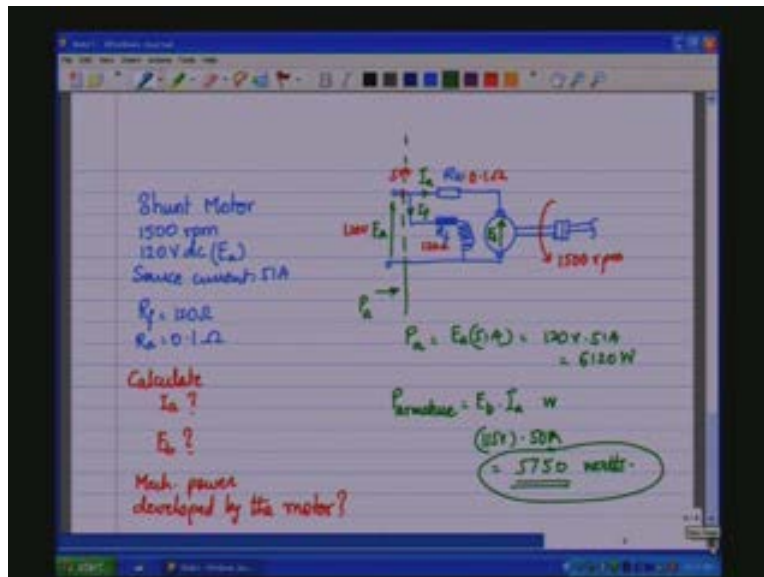 Shunt Motor
1500 rpm
120V dc (Ea)
Source current: 51A
Rf = 120Ω
Ra = 0.1Ω
Calculate
Ia ?
Eb ?
Mech. power
developed by the motor?
Ia Ra 0.1Ω
If
120V Ea
Rf
120Ω
Eb
1500 rpm
Pa
Pa = Ea(51A) = 120V.51A
= 6120W
Parmature = Eb . Ia W
(115V) . 50A
= 5750 watts.